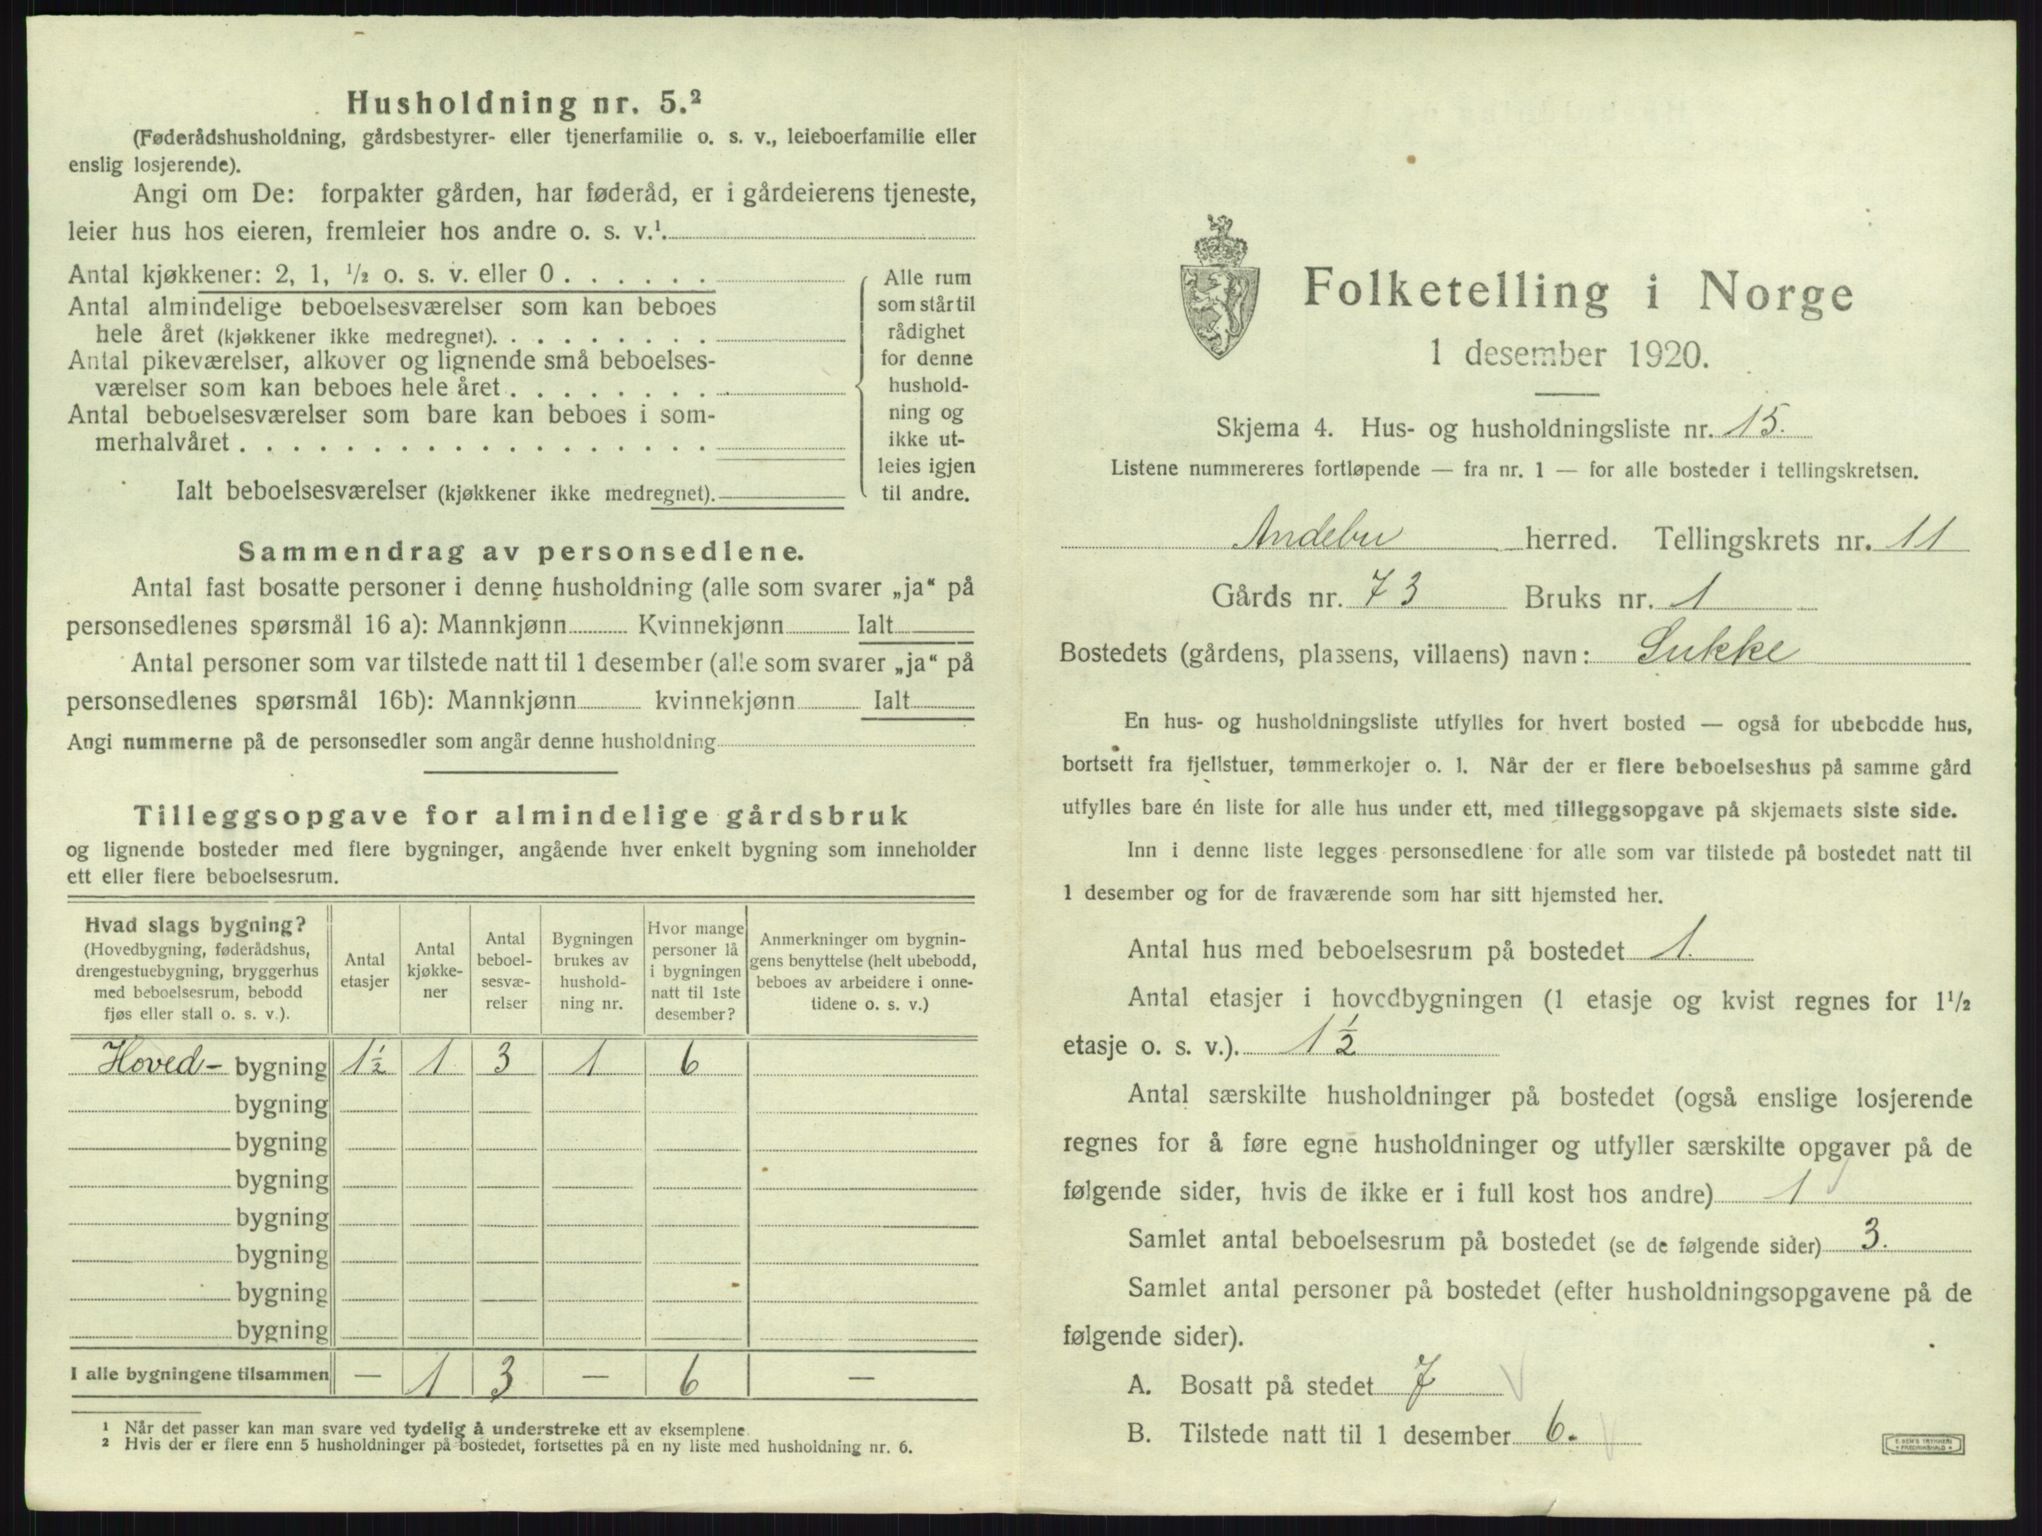 Husholdning nr. 5.²
(Føderådshusholdning, gårdsbestyrer- eller tjenerfamilie o. s. v., leieboerfamilie eller
enslig losjerende).
Angi om De: forpakter gården, har føderåd, er i gårdeierens tjeneste,
leier hus hos eieren, fremleier hos andre o. s. v.¹
Antal kjøkkener: 2, 1, ½ o. s. v. eller 0
Antal almindelige beboelsesværelser som kan beboes
hele året (kjøkkener ikke medregnet).
Antal pikeværelser, alkover og lignende små beboelses-
værelser som kan beboes hele året
Antal beboelsesværelser som bare kan beboes i som-
merhalvåret
Ialt beboelsesværelser (kjøkkener ikke medregnet).
Alle rum
som står til
rådighet
for denne
hushold-
ning og
ikke ut-
leies igjen
til andre.
Sammendrag av personsedlene.
Antal fast bosatte personer i denne husholdning (alle som svarer „ja“ på
personsedlenes spørsmål 16 a): Mannkjønn Kvinnekjønn Ialt
Antal personer som var tilstede natt til 1 desember (alle som svarer „ja“ på
personsedlenes spørsmål 16b): Mannkjønn kvinnekjønn Ialt
Angi nummerne på de personsedler som angår denne husholdning
Tilleggsopgave for almindelige gårdsbruk
og lignende bosteder med flere bygninger, angående hver enkelt bygning som inneholder
ett eller flere beboelsesrum.
Hvad slags bygning?
(Hovedbygning, føderådshus,
drengestuebygning, bryggerhus
med beboelsesrum, bebodd
fjøs eller stall o. s. v.).
Antal
etasjer
Antal
kjøkke-
ner
Antal
beboel-
sesvæ-
relser
Bygningen
brukes av
hushold-
ning nr.
Hvor mange
personer lå
i bygningen
natt til 1ste
desember?
Anmerkninger om bygnin-
gens benyttelse (helt ubebodd,
beboes av arbeidere i onne-
tidene o. s. v.)
Hoved- bygning 1½ 1 3 1 6
bygning
bygning
bygning
bygning
bygning
bygning
bygning
I alle bygningene tilsammen — 1 3 — 6 —
¹ Når det passer kan man svare ved tydelig å understreke ett av eksemplene.
² Hvis der er flere enn 5 husholdninger på bostedet, fortsettes på en ny liste med husholdning nr. 6.
Folketelling i Norge
1 desember 1920.
Skjema 4. Hus- og husholdningsliste nr. 15.
Listene nummereres fortløpende — fra nr. 1 — for alle bosteder i tellingskretsen.
Andebu herred. Tellingskrets nr. 11
Gårds nr. 73 Bruks nr. 1
Bostedets (gårdens, plassens, villaens) navn: Sukke
En hus- og husholdningsliste utfylles for hvert bosted — også for ubebodde hus,
bortsett fra fjellstuer, tømmerkojer o. l. Når der er flere beboelseshus på samme gård
utfylles bare én liste for alle hus under ett, med tilleggsopgave på skjemaets siste side.
Inn i denne liste legges personsedlene for alle som var tilstede på bostedet natt til
1 desember og for de fraværende som har sitt hjemsted her.
Antal hus med beboelsesrum på bostedet 1.
Antal etasjer i hovedbygningen (1 etasje og kvist regnes for 1½
etasje o. s. v.). 1½
Antal særskilte husholdninger på bostedet (også enslige losjerende
regnes for å føre egne husholdninger og utfyller særskilte opgaver på de
følgende sider, hvis de ikke er i full kost hos andre) 1
Samlet antal beboelsesrum på bostedet (se de følgende sider) 3.
Samlet antal personer på bostedet (efter husholdningsopgavene på de
følgende sider).
A. Bosatt på stedet 7
B. Tilstede natt til 1 desember 6.